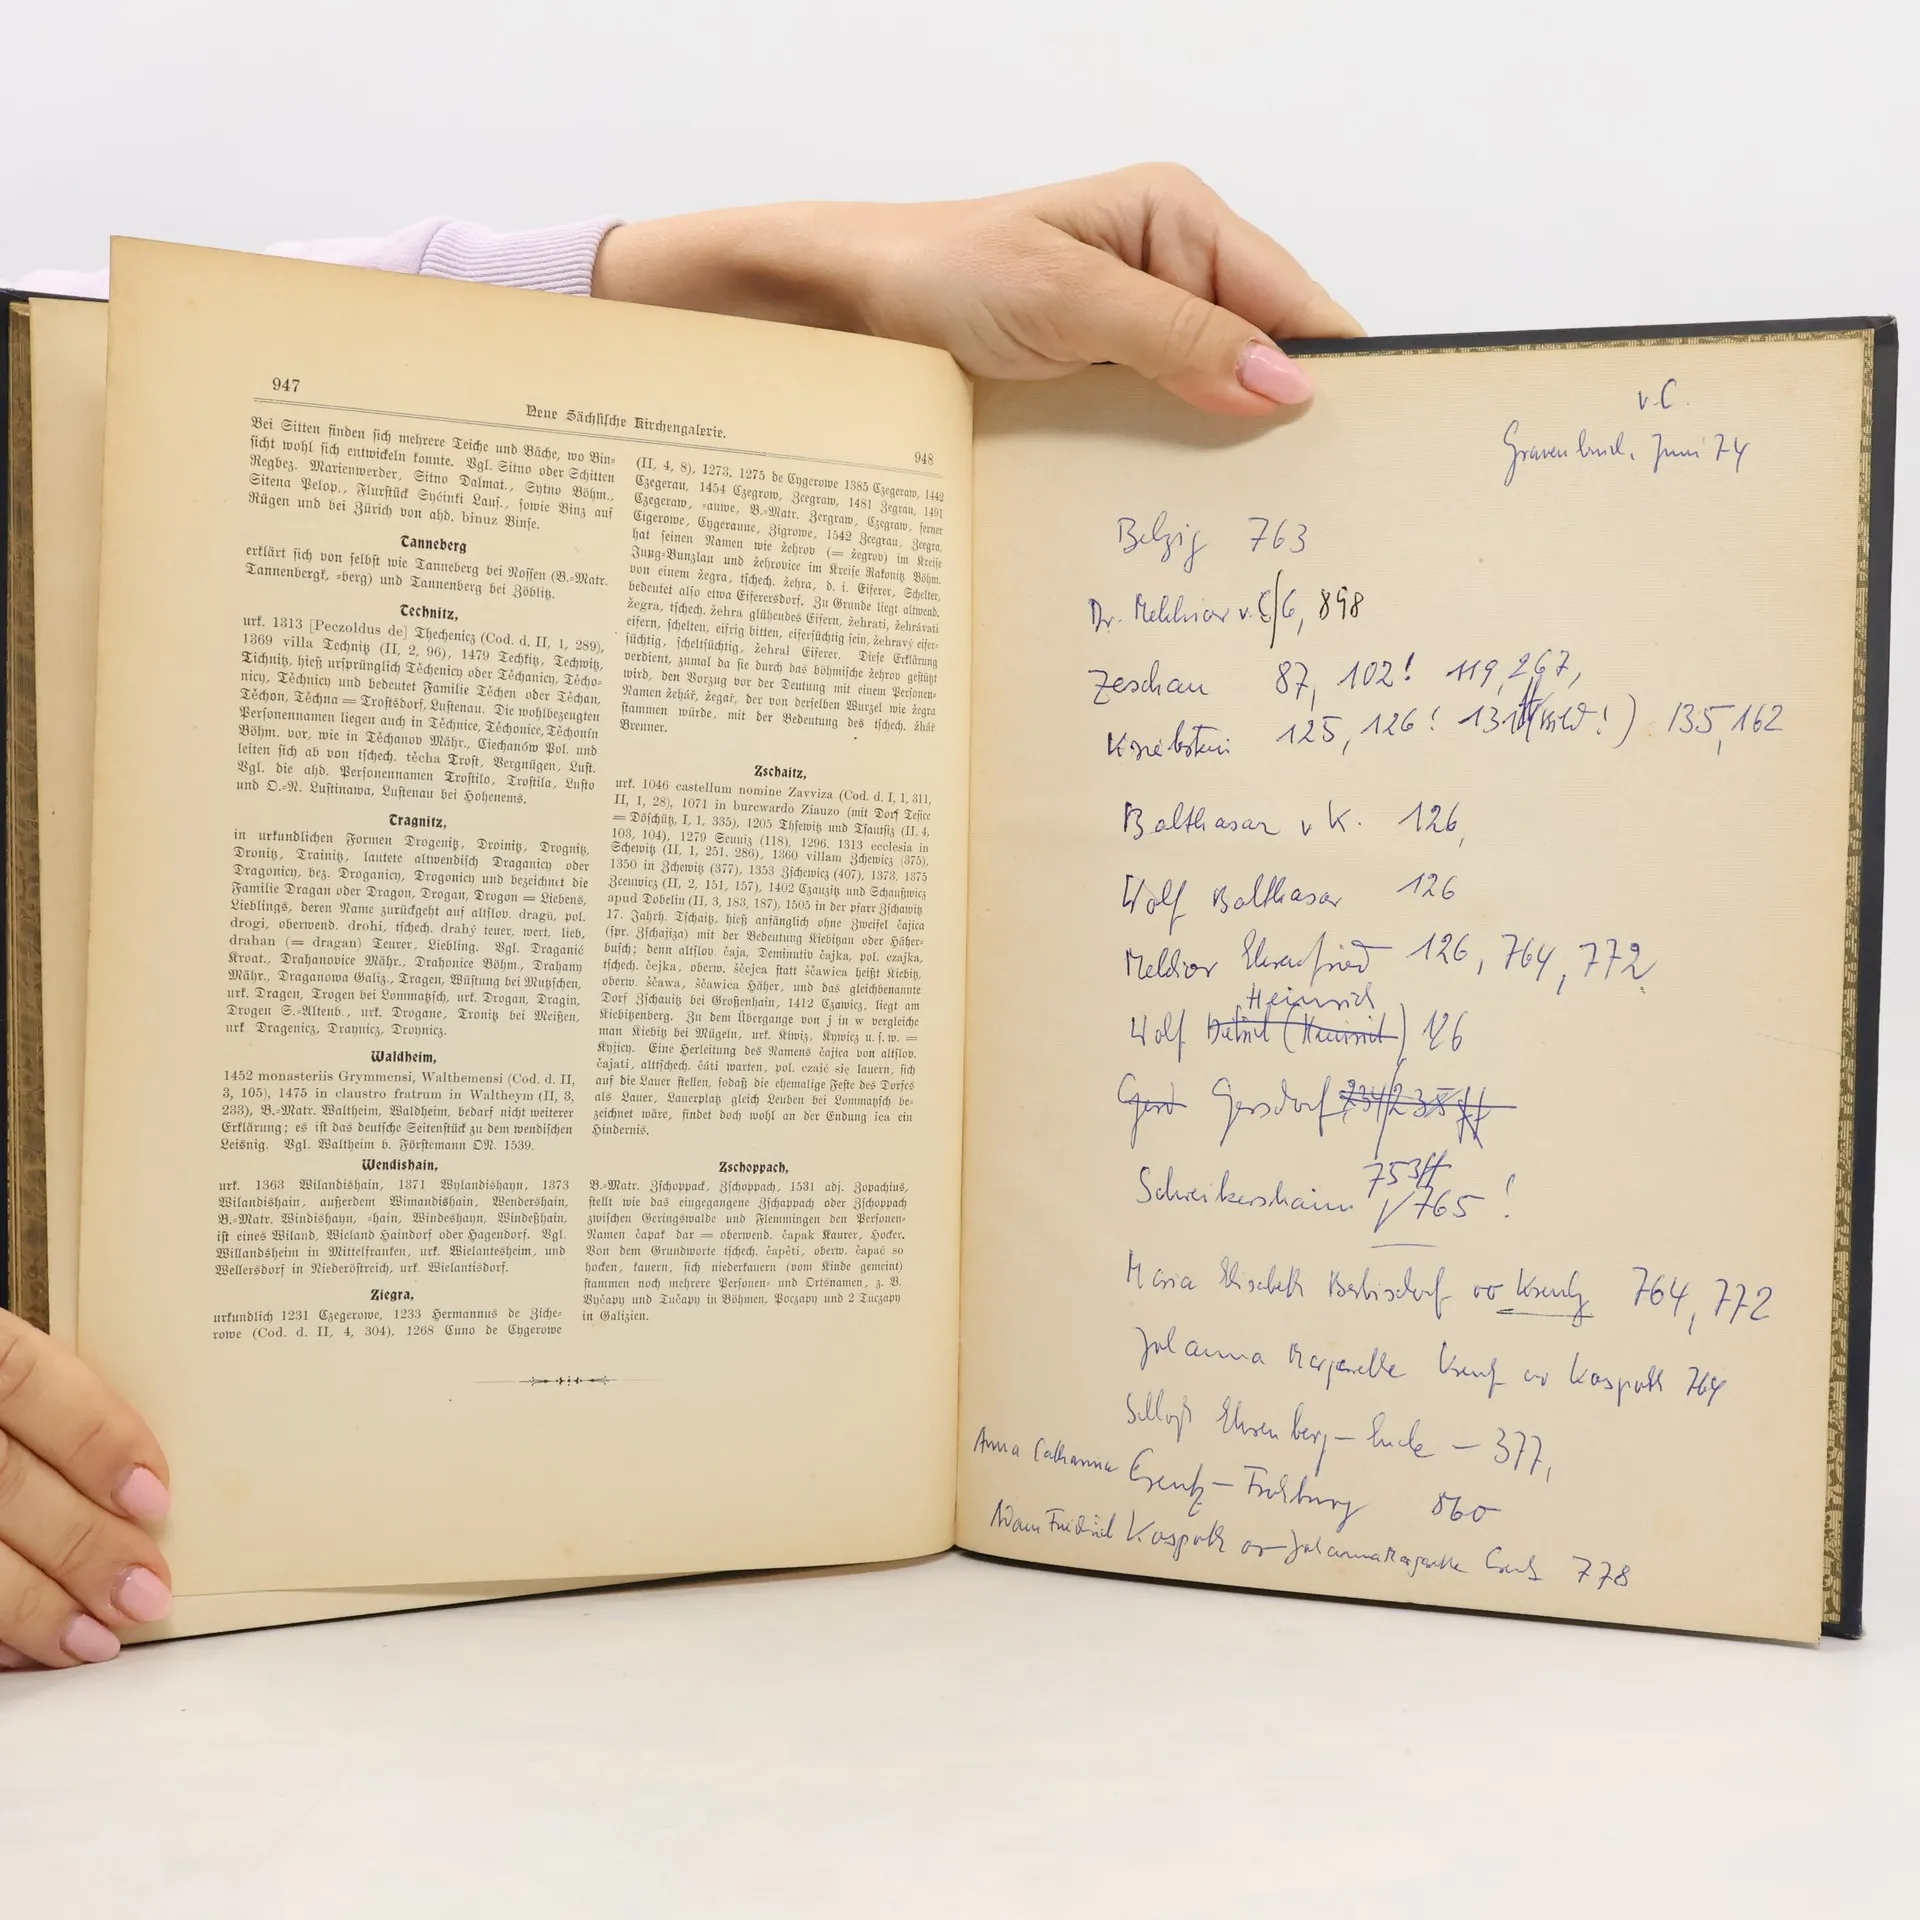 947
Neue Sächsische Kirchengalerie.
948
Bei Sitten finden sich mehrere Teiche und Bäche, wo Bin-
sicht wohl sich entwickeln konnte. Vgl. Sitno oder Schitten
Regbez. Marienwerder, Sitno Dalmat., Sytno Böhm.,
Sitena Pelop., Flurstück Syćinki Laus., sowie Binz auf
Rügen und bei Zürich von ahd. binuz Binse.
Tanneberg
erklärt sich von selbst wie Tanneberg bei Nossen (B.-Matr.
Tannenbergk, -berg) und Tannenberg bei Zöblitz.
Technitz,
urk. 1313 [Peczoldus de] Thechenicz (Cod. d. II, 1, 289),
1369 villa Technitz (II, 2, 96), 1479 Techtitz, Techwitz,
Tichnitz, hieß ursprünglich Těchenicy oder Těchanicy, Těcho-
nicy, Těchnicy und bedeutet Familie Těchen oder Těchan,
Těchon, Těchna = Trostsdorf, Lustenau. Die wohlbezeugten
Personennamen liegen auch in Těchnice, Těchonice, Těchonín
Böhm. vor, wie in Těchanov Mähr., Ciechanów Pol. und
leiten sich ab von tschech. těcha Trost, Vergnügen, Lust.
Vgl. die ahd. Personennamen Trostilo, Trostila, Lusto
und O.-N. Lustinawa, Lustenau bei Hohenems.
Tragnitz,
in urkundlichen Formen Drogenitz, Droinitz, Drognitz,
Dronitz, Trainitz, lautete altwendisch Draganicy oder
Dragonicy, bez. Droganicy, Drogonicy und bezeichnet die
Familie Dragan oder Dragon, Drogan, Drogon = Liebens,
Lieblings, deren Name zurückgeht auf altslov. dragŭ, pol.
drogi, oberwend. drohi, tschech. drahý teuer, wert, lieb,
drahan (= dragan) Teurer, Liebling. Vgl. Draganić
Kroat., Drahanovice Mähr., Drahonice Böhm., Drahany
Mähr., Draganowa Galiz., Tragen, Wüstung bei Mutzschen,
urk. Dragen, Trogen bei Lommatzsch, urk. Drogan, Dragin,
Drogen S.-Altenb., urk. Drogane, Tronitz bei Meißen,
urk Dragenicz, Draynicz, Droynicz.
Waldheim,
1452 monasteriis Grymmensi, Walthemensi (Cod. d. II,
3, 105), 1475 in claustro fratrum in Waltheym (II, 3,
233), B.-Matr. Waltheim, Waldheim, bedarf nicht weiterer
Erklärung; es ist das deutsche Seitenstück zu dem wendischen
Leisnig. Vgl. Waltheim b. Förstemann ON. 1539.
Wendishain,
urk. 1363 Wilandishain, 1371 Wylandishayn, 1373
Wilandishain, außerdem Wimandishain, Wendershain,
B.-Matr. Windishayn, -hain, Windeshayn, Windeßhain,
ist eines Wiland, Wieland Haindorf oder Hagendorf. Vgl.
Willandsheim in Mittelfranken, urk. Wielantesheim, und
Wellersdorf in Niederöstreich, urk. Wielantisdorf.
Ziegra,
urkundlich 1231 Czegerowe, 1233 Hermannus de Ziche-
rowe (Cod. d. II, 4, 304), 1268 Cuno de Cygerowe
(II, 4, 8), 1273. 1275 de Cygerowe 1385 Czegeraw, 1442
Czegerau, 1454 Czegrow, Zcegraw, 1481 Zegrau, 1491
Czegeraw, -auwe, B.-Matr. Zergraw, Czegraw, ferner
Cigerowe, Cygeraune, Zigrowe, 1542 Zcegrau, Zcegra,
hat seinen Namen wie žehrov (= žegrov) im Kreise
Jung-Bunzlau und žehrovice im Kreise Rakonitz Böhm.
von einem žegra, tschech. žehra, d. i. Eiferer, Schelter,
bedeutet also etwa Eiferersdorf. Zu Grunde liegt altwend.
žegra, tschech. žehra glühendes Eifern, žehrati, žehrávati
eifern, schelten, eifrig bitten, eifersüchtig sein, žehravý eifer-
süchtig, scheltsüchtig, žehral Eiferer. Diese Erklärung
verdient, zumal da sie durch das böhmische žehrov gestützt
wird, den Vorzug vor der Deutung mit einem Personen-
Namen žehář, žegař, der von derselben Wurzel wie žegra
stammen würde, mit der Bedeutung des tschech. žhář
Brenner.
Zschaitz,
urk. 1046 castellum nomine Zavviza (Cod. d. I, 1, 311,
II, 1, 28), 1071 in burcwardo Ziauzo (mit Dorf Tesice
= Döschütz, I, 1, 335), 1205 Thsewitz und Tsautsiz (II, 4,
103, 104), 1279 Seuuiz (118), 1296. 1313 ecclesia in
Schewitz (II, 1, 251. 286), 1360 villam Zchewicz (375),
1350 in Zchewitz (377), 1353 Zschewicz (407), 1373. 1375
Zceuwicz (II, 2, 151, 157), 1402 Czauzitz und Schaußwicz
apud Dobelin (II, 3, 183, 187), 1505 in der pfarr Zschawitz
17. Jahrh. Tschaitz, hieß anfänglich ohne Zweifel čajica
(spr. Zschajiza) mit der Bedeutung Kiebitzau oder Häher-
busch; denn altslov. čaja, Deminutiv čajka, pol. czajka,
tschech. čejka, oberw. šćejca statt šćawica heißt Kiebitz,
oberw. šćawa, šćawica Häher, und das gleichbenannte
Dorf Zschauitz bei Großenhain, 1412 Czawicz, liegt am
Kiebitzenberg. Zu dem Übergange von j in w vergleiche
man Kiebitz bei Mügeln, urk. Kiwiz, Kywicz u. s. w. =
Kyjicy. Eine Herleitung des Namens čajica von altslov.
čajati, alttschech. čáti warten, pol. czaić się lauern, sich
auf die Lauer stellen, sodaß die ehemalige Feste des Dorfes
als Lauer, Lauerplatz gleich Leuben bei Lommatzsch be-
zeichnet wäre, findet doch wohl an der Endung ica ein
Hindernis.
Zschoppach,
B.-Matr. Zschoppack, Zschoppach, 1531 adj. Zopachius,
stellt wie das eingegangene Zschappach oder Zschopach
zwischen Geringswalde und Flemmingen den Personen-
Namen čapak dar = oberwend. čapak Kaurer, Hocker.
Von dem Grundworte tschech. čapěti, oberw. čapać so
hocken, kauern, sich niederkauern (vom Kinde gemeint)
stammen noch mehrere Personen- und Ortsnamen, z. B.
Vyčapy und Tučapy in Böhmen, Poczapy und 2 Tuczapy
in Galizien.
v. C.
Gravenbruch, Juni 74
Belzig 763
Dr. Melchior v. C/6, 898
Zeschau 87, 102! 119, 267,
Kriebstein 125, 126! 131ff (Bild!) 135, 162
Balthasar v K. 126,
Wolf Balthasar 126
Melchior Ehrenfried 126, 764, 772
Heinrich
Wolf Dietrich (Heinrich) 126
Gersd Gersdorf 234/235 ff
753ff
Schweikershain / 765 !
Maria Elisabeth Berbisdorf oo Kreutz 764, 772
Johanna Margarethe Kreutz oo Kospoth 764
Schloß Ehrenberg - Ende - 377,
Anna Catharina Creutz - Frohburg 860
Adam Friedrich Kospoth oo Johanna Margarethe Creutz 778